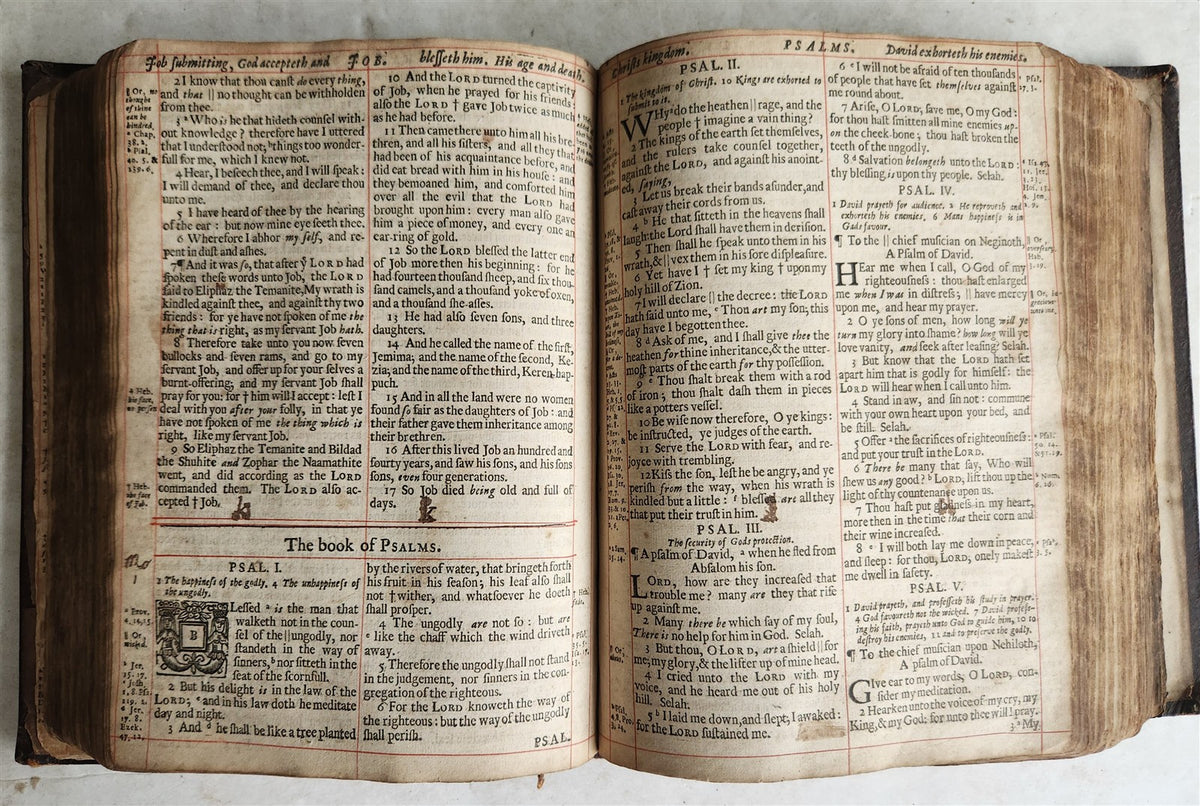 Job ſubmitting, God accepteth and JOB. bleſſeth him. His age and death.
2 I know that thou canſt do every thing,
and that || no thought can be withholden
from thee.
3 ª Who is he that hideth counſel with-
out knowledge? therefore have I uttered
that I underſtood not; ᵇ things too wonder-
full for me, which I knew not.
4 Hear, I beſeech thee, and I will ſpeak:
I will demand of thee, and declare thou
unto me.
5 I have heard of thee by the hearing
of the ear: but now mine eye ſeeth thee.
6 Wherefore I abhor my ſelf, and re-
pent in duſt and aſhes.
7 ¶ And it was ſo, that after ẏ LORD had
ſpoken theſe words unto Job, the LORD
ſaid to Eliphaz the Temanite, My wrath is
kindled againſt thee, and againſt thy two
friends: for ye have not ſpoken of me the
thing that is right, as my ſervant Job hath.
8 Therefore take unto you now ſeven
bullocks and ſeven rams, and go to my
ſervant Job, and offer up for your ſelves a
burnt-offering; and my ſervant Job ſhall
pray for you: for † him will I accept: leſt I
deal with you after your folly, in that ye
have not ſpoken of me the thing which is
right, like my ſervant Job.
9 So Eliphaz the Temanite and Bildad
the Shuhite and Zophar the Naamathite
went, and did according as the LORD
commanded them. The LORD alſo ac-
cepted † Job.
10 And the LORD turned the captivity
of Job, when he prayed for his friends:
alſo the LORD † gave Job twice as much
as he had before.
11 Then came there unto him all his bre-
thren, and all his ſiſters, and all they that
had been of his acquaintance before, and
did eat bread with him in his houſe: and
they bemoaned him, and comforted him
over all the evil that the LORD had
brought upon him: every man alſo gave
him a piece of money, and every one an
ear-ring of gold.
12 So the LORD bleſſed the latter end
of Job more then his beginning: for he
had fourteen thouſand ſheep, and ſix thou-
ſand camels, and a thouſand yoke of oxen,
and a thouſand ſhe-aſſes.
13 He had alſo ſeven ſons, and three
daughters.
14 And he called the name of the firſt,
Jemima; and the name of the ſecond, Ke-
zia; and the name of the third, Keren-hap-
puch.
15 And in all the land were no women
found ſo fair as the daughters of Job: and
their father gave them inheritance among
their brethren.
16 After this lived Job an hundred and
fourty years, and ſaw his ſons, and his ſons
ſons, even four generations.
17 So Job died being old and full of
days.
|| Or, no
thought
of thine
can be
hindred.
ª Chap.
38. 2.
ᵇ Pſal.
40. 5. &
139. 6.
† Heb.
his face,
† Heb.
the face
of Job.
The book of PSALMS.
PSAL. I.
1 The happineſs of the godly. 4 The unhappineſs of
the ungodly.
BLeſſed ª is the man that
walketh not in the coun-
ſel of the || ungodly, nor
ſtandeth in the way of
ſinners, ᵇ nor ſitteth in the
ſeat of the ſcornfull.
2 But his delight is in the law of the
LORD; ᶜ and in his law doth he meditate
day and night.
3 And ᵈ he ſhall be like a tree planted
by the rivers of water, that bringeth forth
his fruit in his ſeaſon; his leaf alſo ſhall
not † wither, and whatſoever he doeth
ſhall proſper.
4 The ungodly are not ſo: but are
ᵉ like the chaff which the wind driveth
away.
5 Therefore the ungodly ſhall not ſtand
in the judgement, nor ſinners in the con-
gregation of the righteous.
6 For the LORD knoweth the way of
the righteous: but the way of the ungodly
ſhall periſh.
PSAL.
ª Prov.
4. 14, 15.
|| Or,
wicked.
ᵇ Jer.
15. 17.
ᶜ Joſh.
1. 8. Pſ.
119. 1.
ᵈ Jer.
17. 8.
Ezek.
47. 12.
Chriſts kingdom. PSALMS. David exhorteth his enemies.
PSAL. II.
1 The kingdom of Chriſt. 10 Kings are exhorted to
ſubmit to it.
WHy ª do the heathen || rage, and the
people † imagine a vain thing?
2 The kings of the earth ſet themſelves,
and the rulers take counſel together,
againſt the LORD, and againſt his anoint-
ed, ſaying,
3 Let us break their bands aſunder, and
caſt away their cords from us.
4 ᵇ He that ſitteth in the heavens ſhall
laugh: the Lord ſhall have them in deriſion.
5 Then ſhall he ſpeak unto them in his
wrath, & || vex them in his ſore diſpleaſure.
6 Yet have I † ſet my king † upon my
holy hill of Zion.
7 I will declare || the decree: the LORD
hath ſaid unto me, ᶜ Thou art my ſon; this
day have I begotten thee.
8 ᵈ Ask of me, and I ſhall give thee the
heathen for thine inheritance, & the utter-
moſt parts of the earth for thy poſſeſſion.
9 ᵉ Thou ſhalt break them with a rod
of iron; thou ſhalt daſh them in pieces
like a potters veſſel.
10 Be wiſe now therefore, O ye kings:
be inſtructed, ye judges of the earth.
11 Serve the LORD with fear, and re-
joyce with trembling.
12 Kiſs the ſon, leſt he be angry, and ye
periſh from the way, when his wrath is
kindled but a little: ᶠ bleſſed are all they
that put their truſt in him.
PSAL. III.
The ſecurity of Gods protection.
¶ A pſalm of David, ª when he fled from
Abſalom his ſon.
LORD, how are they increaſed that
trouble me? many are they that riſe
up againſt me.
2 Many there be which ſay of my ſoul,
There is no help for him in God. Selah.
3 But thou, O LORD, art a ſhield || for
me; my glory, & the lifter up of mine head.
4 I cried unto the LORD with my
voice, and he heard me out of his holy
hill. Selah.
5 ᵇ I laid me down, and ſlept; I awaked:
for the LORD ſuſtained me.
6 ᶜ I will not be afraid of ten thouſands
of people that have ſet themſelves againſt
me round about.
7 Ariſe, O LORD, ſave me, O my God:
for thou haſt ſmitten all mine enemies up-
on the cheek-bone; thou haſt broken the
teeth of the ungodly.
8 ᵈ Salvation belongeth unto the LORD:
thy bleſſing is upon thy people. Selah.
PSAL. IV.
1 David prayeth for audience. 2 He reproveth and
exhorteth his enemies, 6 Mans happineſs is in
Gods favour.
¶ To the || chief muſician on Neginoth,
A Pſalm of David.
HEar me when I call, O God of my
righteouſneſs: thou haſt enlarged
me when I was in diſtreſs; || have mercy
upon me, and hear my prayer.
2 O ye ſons of men, how long will ye
turn my glory into ſhame? how long will ye
love vanity, and ſeek after leaſing? Selah.
3 But know that the LORD hath ſet
apart him that is godly for himſelf: the
LORD will hear when I call unto him.
4 Stand in aw, and ſin not: commune
with your own heart upon your bed, and
be ſtill. Selah.
5 Offer ª the ſacrifices of righteouſneſs:
and put your truſt in the LORD.
6 There be many that ſay, Who will
ſhew us any good? ᵇ LORD, lift thou up the
light of thy countenance upon us.
7 Thou haſt put gladneſs in my heart,
more then in the time that their corn and
their wine increaſed.
8 ᶜ I will both lay me down in peace,
and ſleep: for thou, LORD, onely makeſt
me dwell in ſafety.
PSAL. V.
1 David prayeth, and profeſſeth his ſtudy in prayer.
4 God favoureth not the wicked. 7 David profeſſ-
ing his faith, prayeth unto God to guide him, 10 to
deſtroy his enemies, 11 and to preſerve the godly.
¶ To the chief muſician upon Nehiloth,
A pſalm of David.
GIve ear to my words, O LORD, con-
ſider my meditation.
2 Hearken unto the voice of my cry, my
King, & my God: for unto thee will I pray.
3 ª My